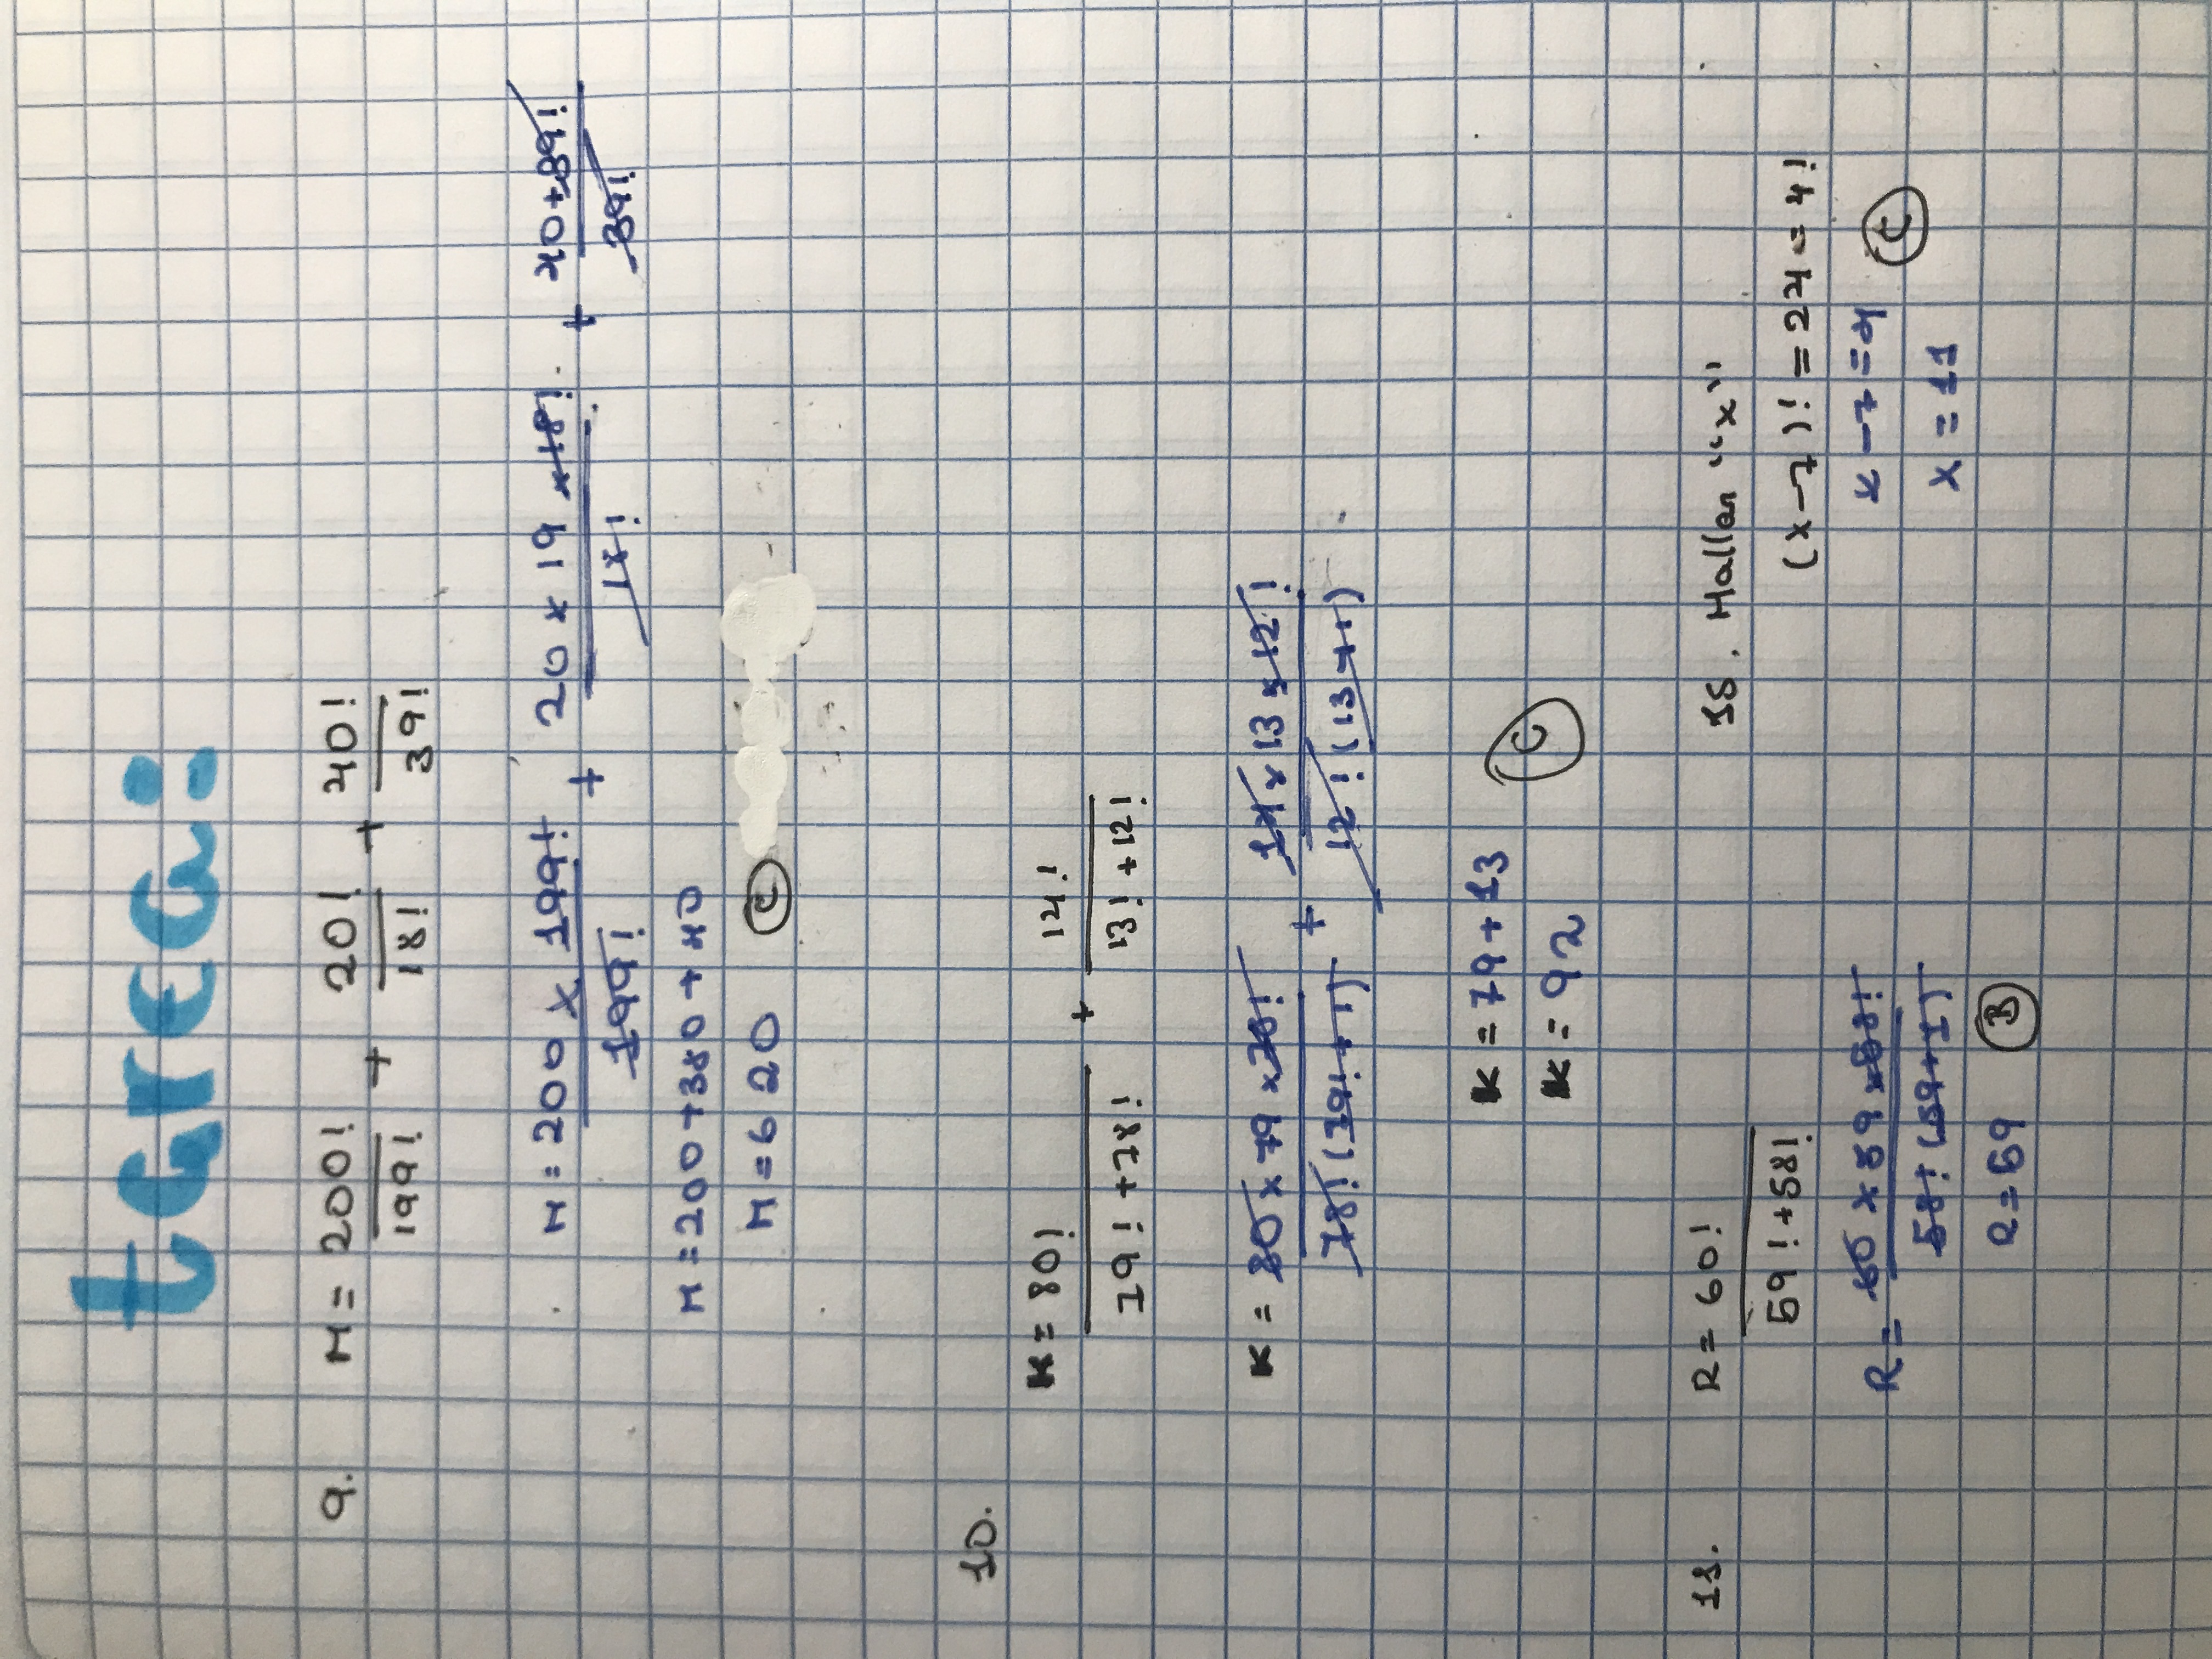 tarea:
9. M = 200!/199! + 20!/18! + 40!/39!
M = 200 x 199!/199! + 20 x 19 x 18!/18! + 40+39!/39!
M = 200+380+40
M = 620 C
10.
K = 80!/79! + 78! + 14!/13! + 12!
K = 80 x 79 x 78!/78! (79! + 1) + 14 x 13 x 12!/12! (13 + 1)
K = 79 + 13
K = 92 C
11. R = 60!/59! + 58!
R = 60 x 59 x 58!/58! (59+1)
R = 59 B
15. Hallar "x"
(x-7)! = 24 = 4!
x - 7 = 4
x = 11 C